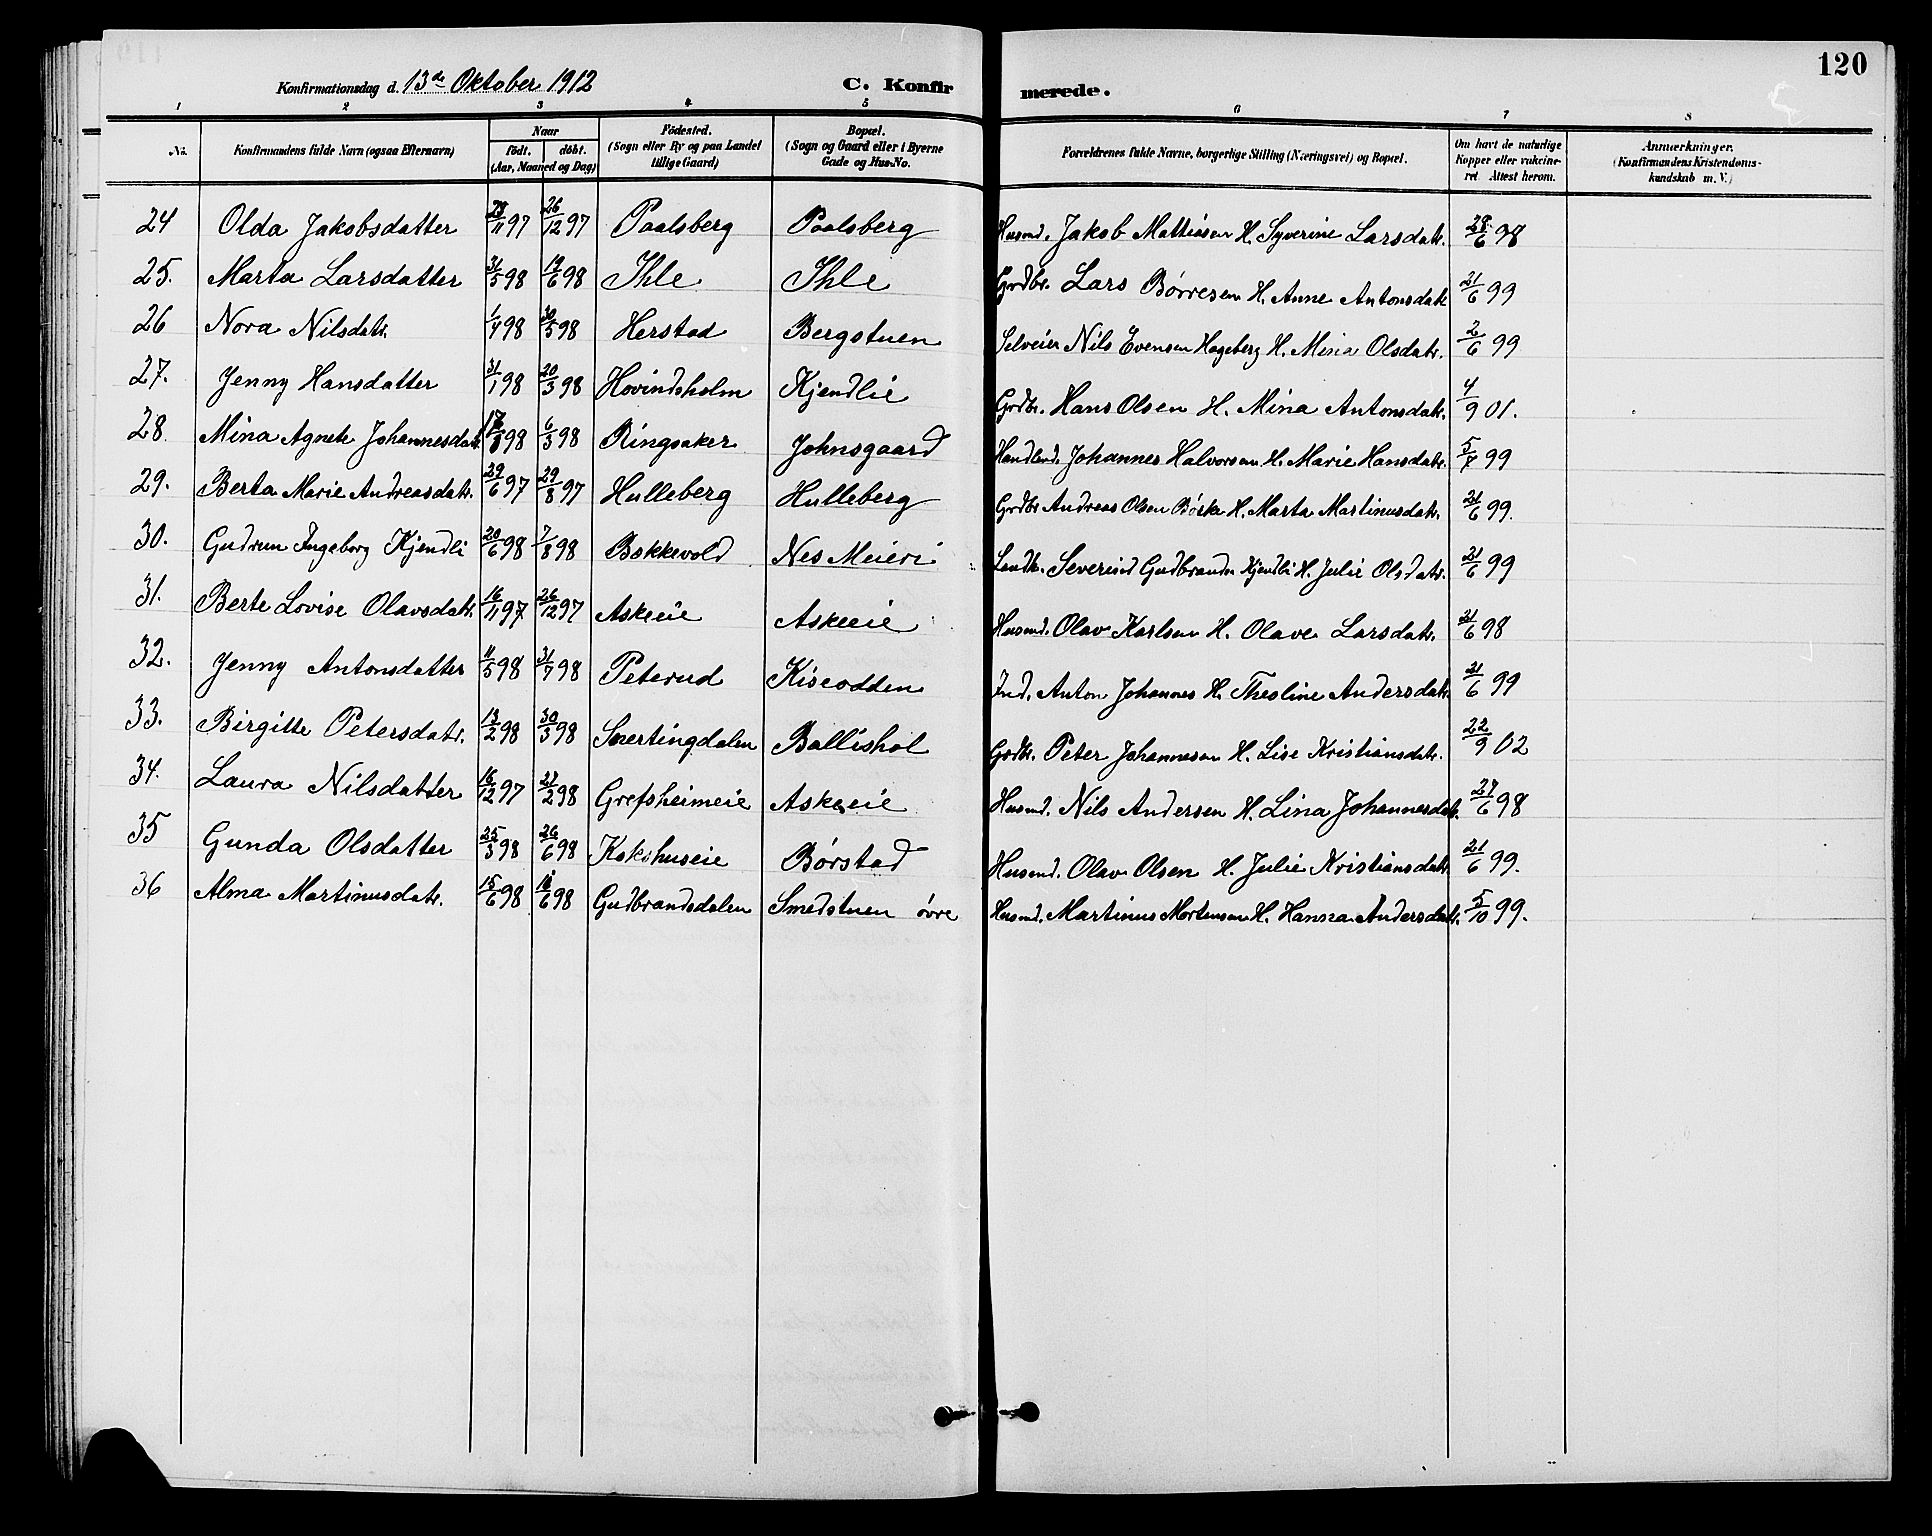 120
Konfirmationsdag d. 13de Oktober 1912 C. Konfirmerede.
1 2 3 4 5 6 7 8
No. Konfirmandens fulde Navn (ogsaa Efternavn) Naar födt. döbt. (Aar, Maaned og Dag) Födested. (Sogn eller By og paa Landet tillige Gaard) Bopæl. (Sogn og Gaard eller i Byerne Gade og Hus-No. Forældrenes fulde Navne, borgerlige Stilling (Næringsvei) og Bopæl. Om havt de naturlige Kopper eller vaccineret Attest herom. Anmærkninger. (Konfirmandens Kristendomskundskab m. V.)
24 Olda Jakobsdatter 28/11 97 26/12 97 Paalsberg Paalsberg Husmd. Jakob Mattiasen H. Syverine Larsdatr. 28/6 98
25. Marta Larsdatter 31/5 98 19/6 98 Ihle Ihle Grdbr. Lars Børresen H. Anne Antonsdatr 21/6 99
26 Nora Nilsdatr. 1/4 98 30/5 98 Herstad Bergstuen Selveier Nils Evensen Hageberg H. Mina Olsdatr. 2/6 99
27. Jenny Hansdatter 31/1 98 20/3 98 Hovindsholm Kjendlie Grdbr. Hans Olsen H. Mina Antonsdatr. 4/9 01.
28. Mina Agnete Johannesdatr. 98 6/3 98 Ringsaker Johnsgaard Handlend. Johannes Halvorsen H. Marie Hansdatr. 5/7 99
29. Berta Marie Andreasdatr. 29/6 97 29/8 97 Hulleberg Hulleberg Grdbr Andreas Olsen Børke H. Marta Martinusdatr. 21/6 99.
30. Gudrun Ingeborg Kjendli 20/6 98 7/8 98 Bakkevold Nes Meieri Landh. Severind Gudbrandn Kjendli H. Julie Olsdatr. 21/6 99
31. Berte Lovise Olavsdatr. 16/11 97 26/12 97 Askeeie Askeeie Husmd. Olav Karlsen H. Olave Larsdatr. 21/6 98
32. Jenny Antonsdatter 11/5 98 31/7 98 Peterud Kiseodden Ind. Anton Johannes H. Theoline Andersdatr. 21/6 99
33. Birgitte Petersdatr. 13/2 98 30/3 98 Snertingdalen Ballishol Grdbr. Peter Johannesen H. Lise Kristiansdatr. 22/9 02
34. Laura Nilsdatter 16/12 97 27/2 98 Grefsheimeie Askeeie Husmd. Nils Andersen H. Lina Johannesdatr. 27/6 98
35 Gunda Olsdatter 25/3 98 26/6 98 Kakshuseie Børstad Husmd. Olav Olsen H. Julie Kristiansdatr 21/6 99.
36 Alma Martinusdatr. 15/6 98 98 Gudbrandsdalen Smedstuen øvre Husmd. Martinus Mortensen H. Hanna Andersdatr. 5/10 99.